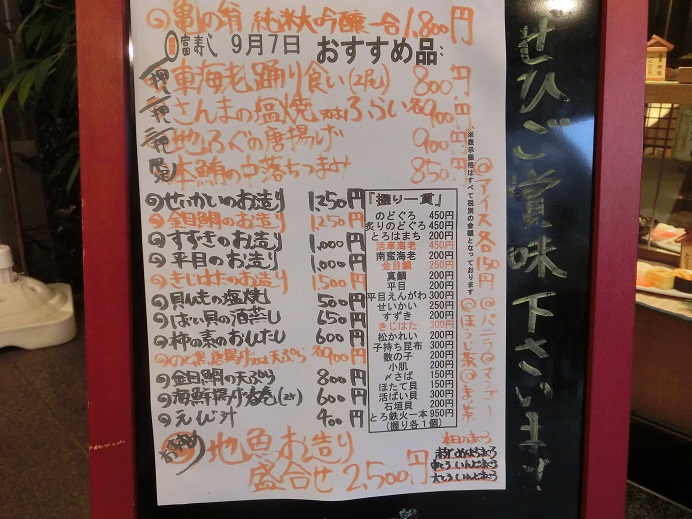 亀の翁 純米大吟醸 一合 1,800円
富寿し 9月7日 おすすめ品
車海老踊り食い(2尾) 800円
さんまの塩焼 各900円
地ふぐの唐揚げ 900円
本鮪の中落ちつまみ 850円
せいかいのお造り 1250円
金目鯛のお造り 1250円
すずきのお造り 1,000円
平目のお造り 1,000円
きじはたのお造り 1500円
貝ももの塩焼 500円
ばい貝の酒蒸し 650円
のど黒 唐揚げ又は天ぷら 各900円
金目鯛の天ぷら 800円
海鮮揚げ春巻(2ヶ) 600円
えび汁 400円
おすすめ 地魚お造り
盛合せ 2,500円
「握り一貫」
のどぐろ 450円
炙りのどぐろ 450円
とろはまち 200円
活車海老 450円
南蛮海老 200円
金目鯛 250円
真鯛 200円
平目 200円
平目えんがわ 300円
せいかい 250円
すずき 200円
きじはた 300円
松かれい 200円
子持ち昆布 300円
数の子 200円
小肌 200円
〆さば 150円
ほたて貝 150円
活ばい貝 300円
石垣貝 200円
とろ鉄火一本 950円
(握り各1個)
※表示価格はすべて税別の金額となっております
@アイス各150円
@バニラ@マンゴー
@ほうじ茶@抹茶
本日のまぐろ
中とろ いんどまぐろ
大とろ いんどまぐろ
ぜひご賞味下さいませ